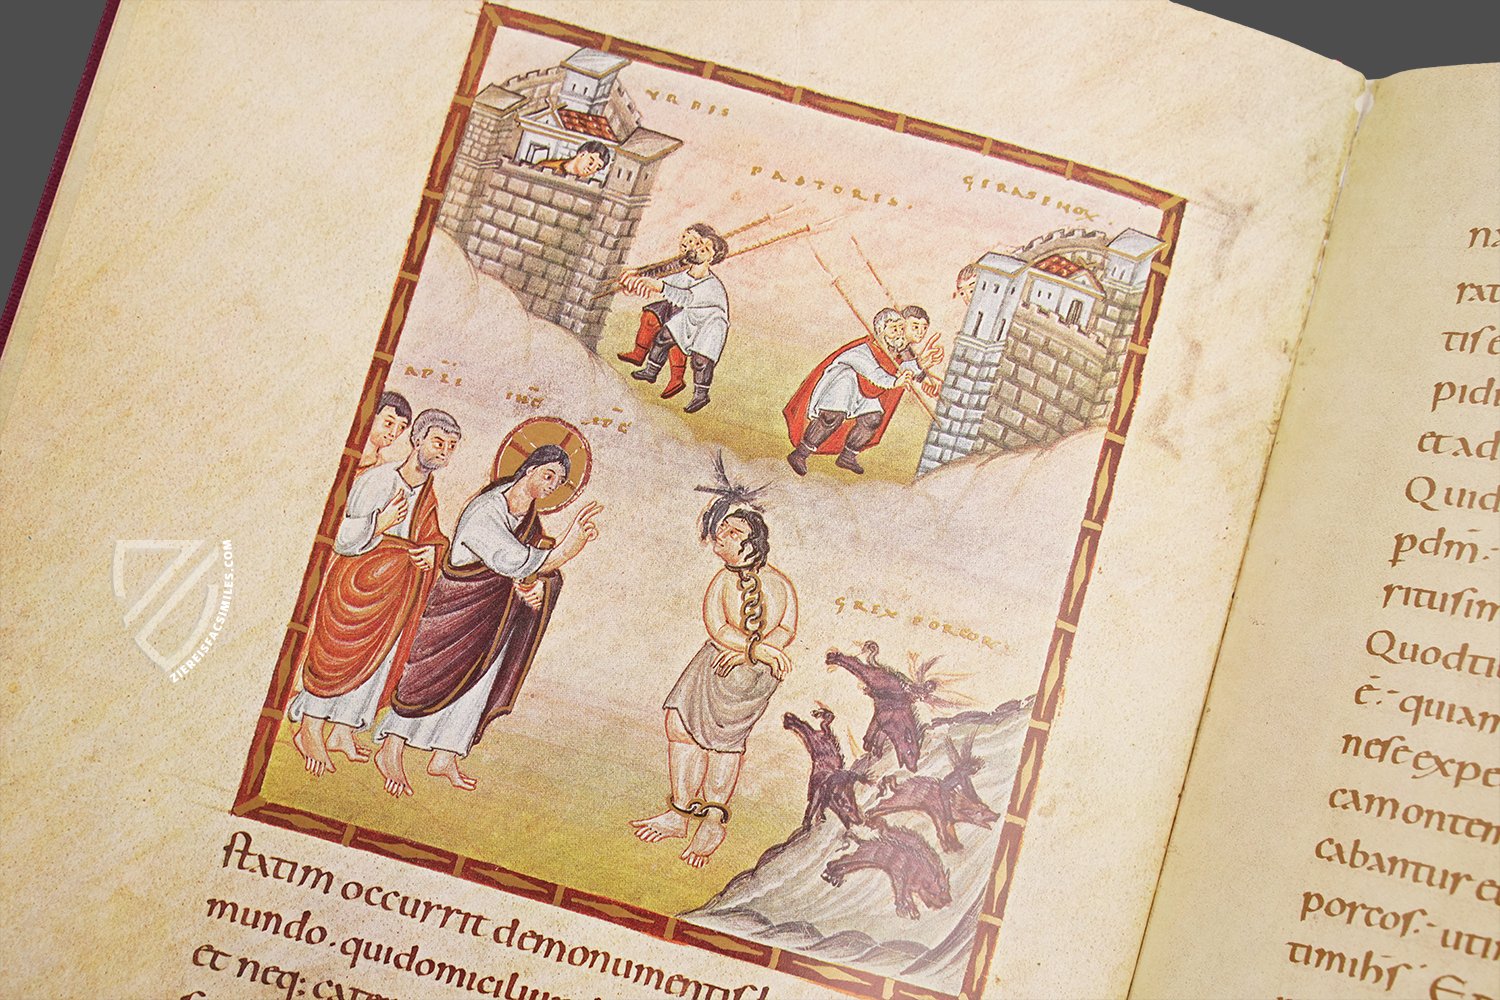 VRBIS
PASTORES.
GERASENOR.
APLI
IHC XPC
GREX PORCOR.
ZIEREISFACSIMILES.COM
statim occurrit de monumentis
mundo. qui domicilium
et neq; cate
na
rat
tis e
pidi
et ad
Quid
pdm.
ritus im
Quod tu
e: quia m
nese expe
ca montem
cabantur e
porcos. utin
timihs E